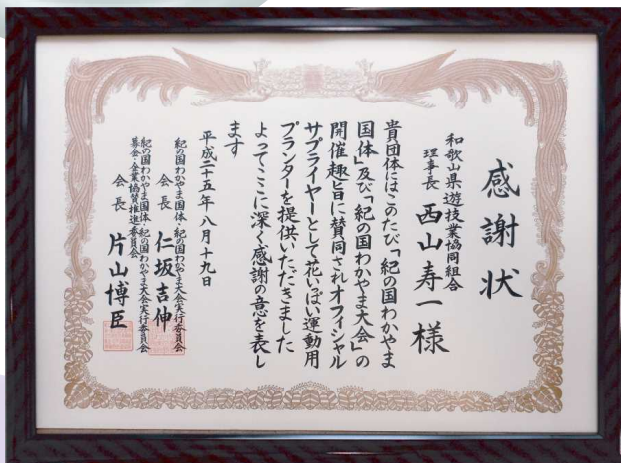 感謝状
和歌山県遊技業協同組合
理事長 西山寿一様
貴団体にはこのたび「紀の国わかやま
国体」及び「紀の国わかやま大会」の
開催趣旨に賛同されオフィシャル
サプライヤーとして花いっぱい運動用
プランターを提供いただきました
よってここに深く感謝の意を表し
ます
平成二十五年八月十九日
紀の国わかやま国体・紀の国わかやま大会実行委員会
会長 仁坂吉伸
紀の国わかやま国体・紀の国わかやま大会実行委員会
募金・企業協賛推進委員会
会長 片山博臣